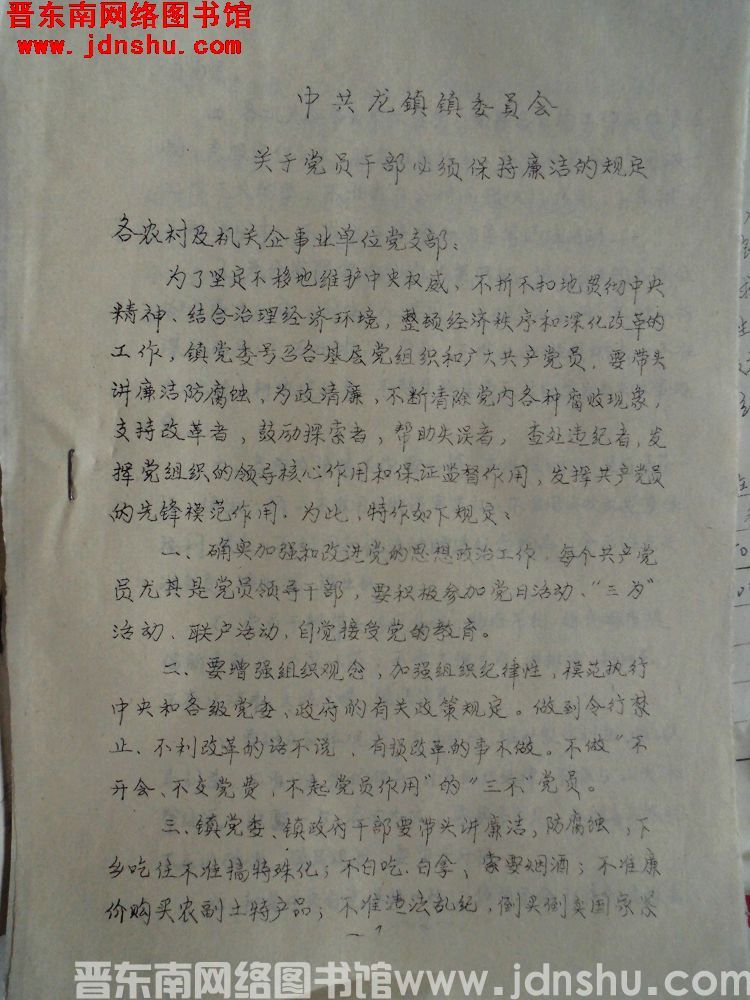 晋东南网络图书馆
www.jdnshu.com
中共龙鎮鎮委員会
关于党员干部必须保持廉洁的规定
各农村及机关企事业单位党支部:
为了坚定不移地维护中央权威,不折不扣地贯彻中央
精神、结合治理经济环境,整顿经济秩序和深化改革的
工作,镇党委号召各基层党组织和广大共产党员,要带头
讲廉洁防腐蚀,为政清廉,不断清除党内各种腐败现象,
支持改革者,鼓励探索者,帮助失误者,查处违纪者,发
挥党组织的领导核心作用和保证监督作用,发挥共产党员
的先锋模范作用.为此,特作如下规定:
一、确实加强和改进党的思想政治工作,每个共产党
员尤其是党员领导干部,要积极参加党日活动、“三为”
活动、联户活动,自觉接受党的教育。
二、要增强组织观念,加强组织纪律性,模范执行
中央和各级党委、政府的有关政策规定。做到令行禁
止、不利改革的话不说,有损改革的事不做。不做“不
开会、不交党费,不起党员作用”的“三不”党员。
三、镇党委、镇政府干部要带头讲廉洁,防腐蚀,下
乡吃住不准搞特殊化;不白吃、白拿、索要烟酒;不准廉
价购买农副土特产品;不准违法乱纪,倒买倒卖国家紧
~1
晋东南网络图书馆www.jdnshu.com